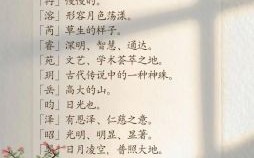 「冉」慢慢的。
「溶」形容月色荡漾。
「芮」草生的样子。
「睿」深明、智慧、通达。
「苑」文艺、学术荟萃之地。
「玥」古代传说中的一种神珠。
「岳」高大的山。
「昀」日光也。
「泽」有恩泽、仁慈之意。
「昭」光明、明显、显著。
日月凌空，普照大地。